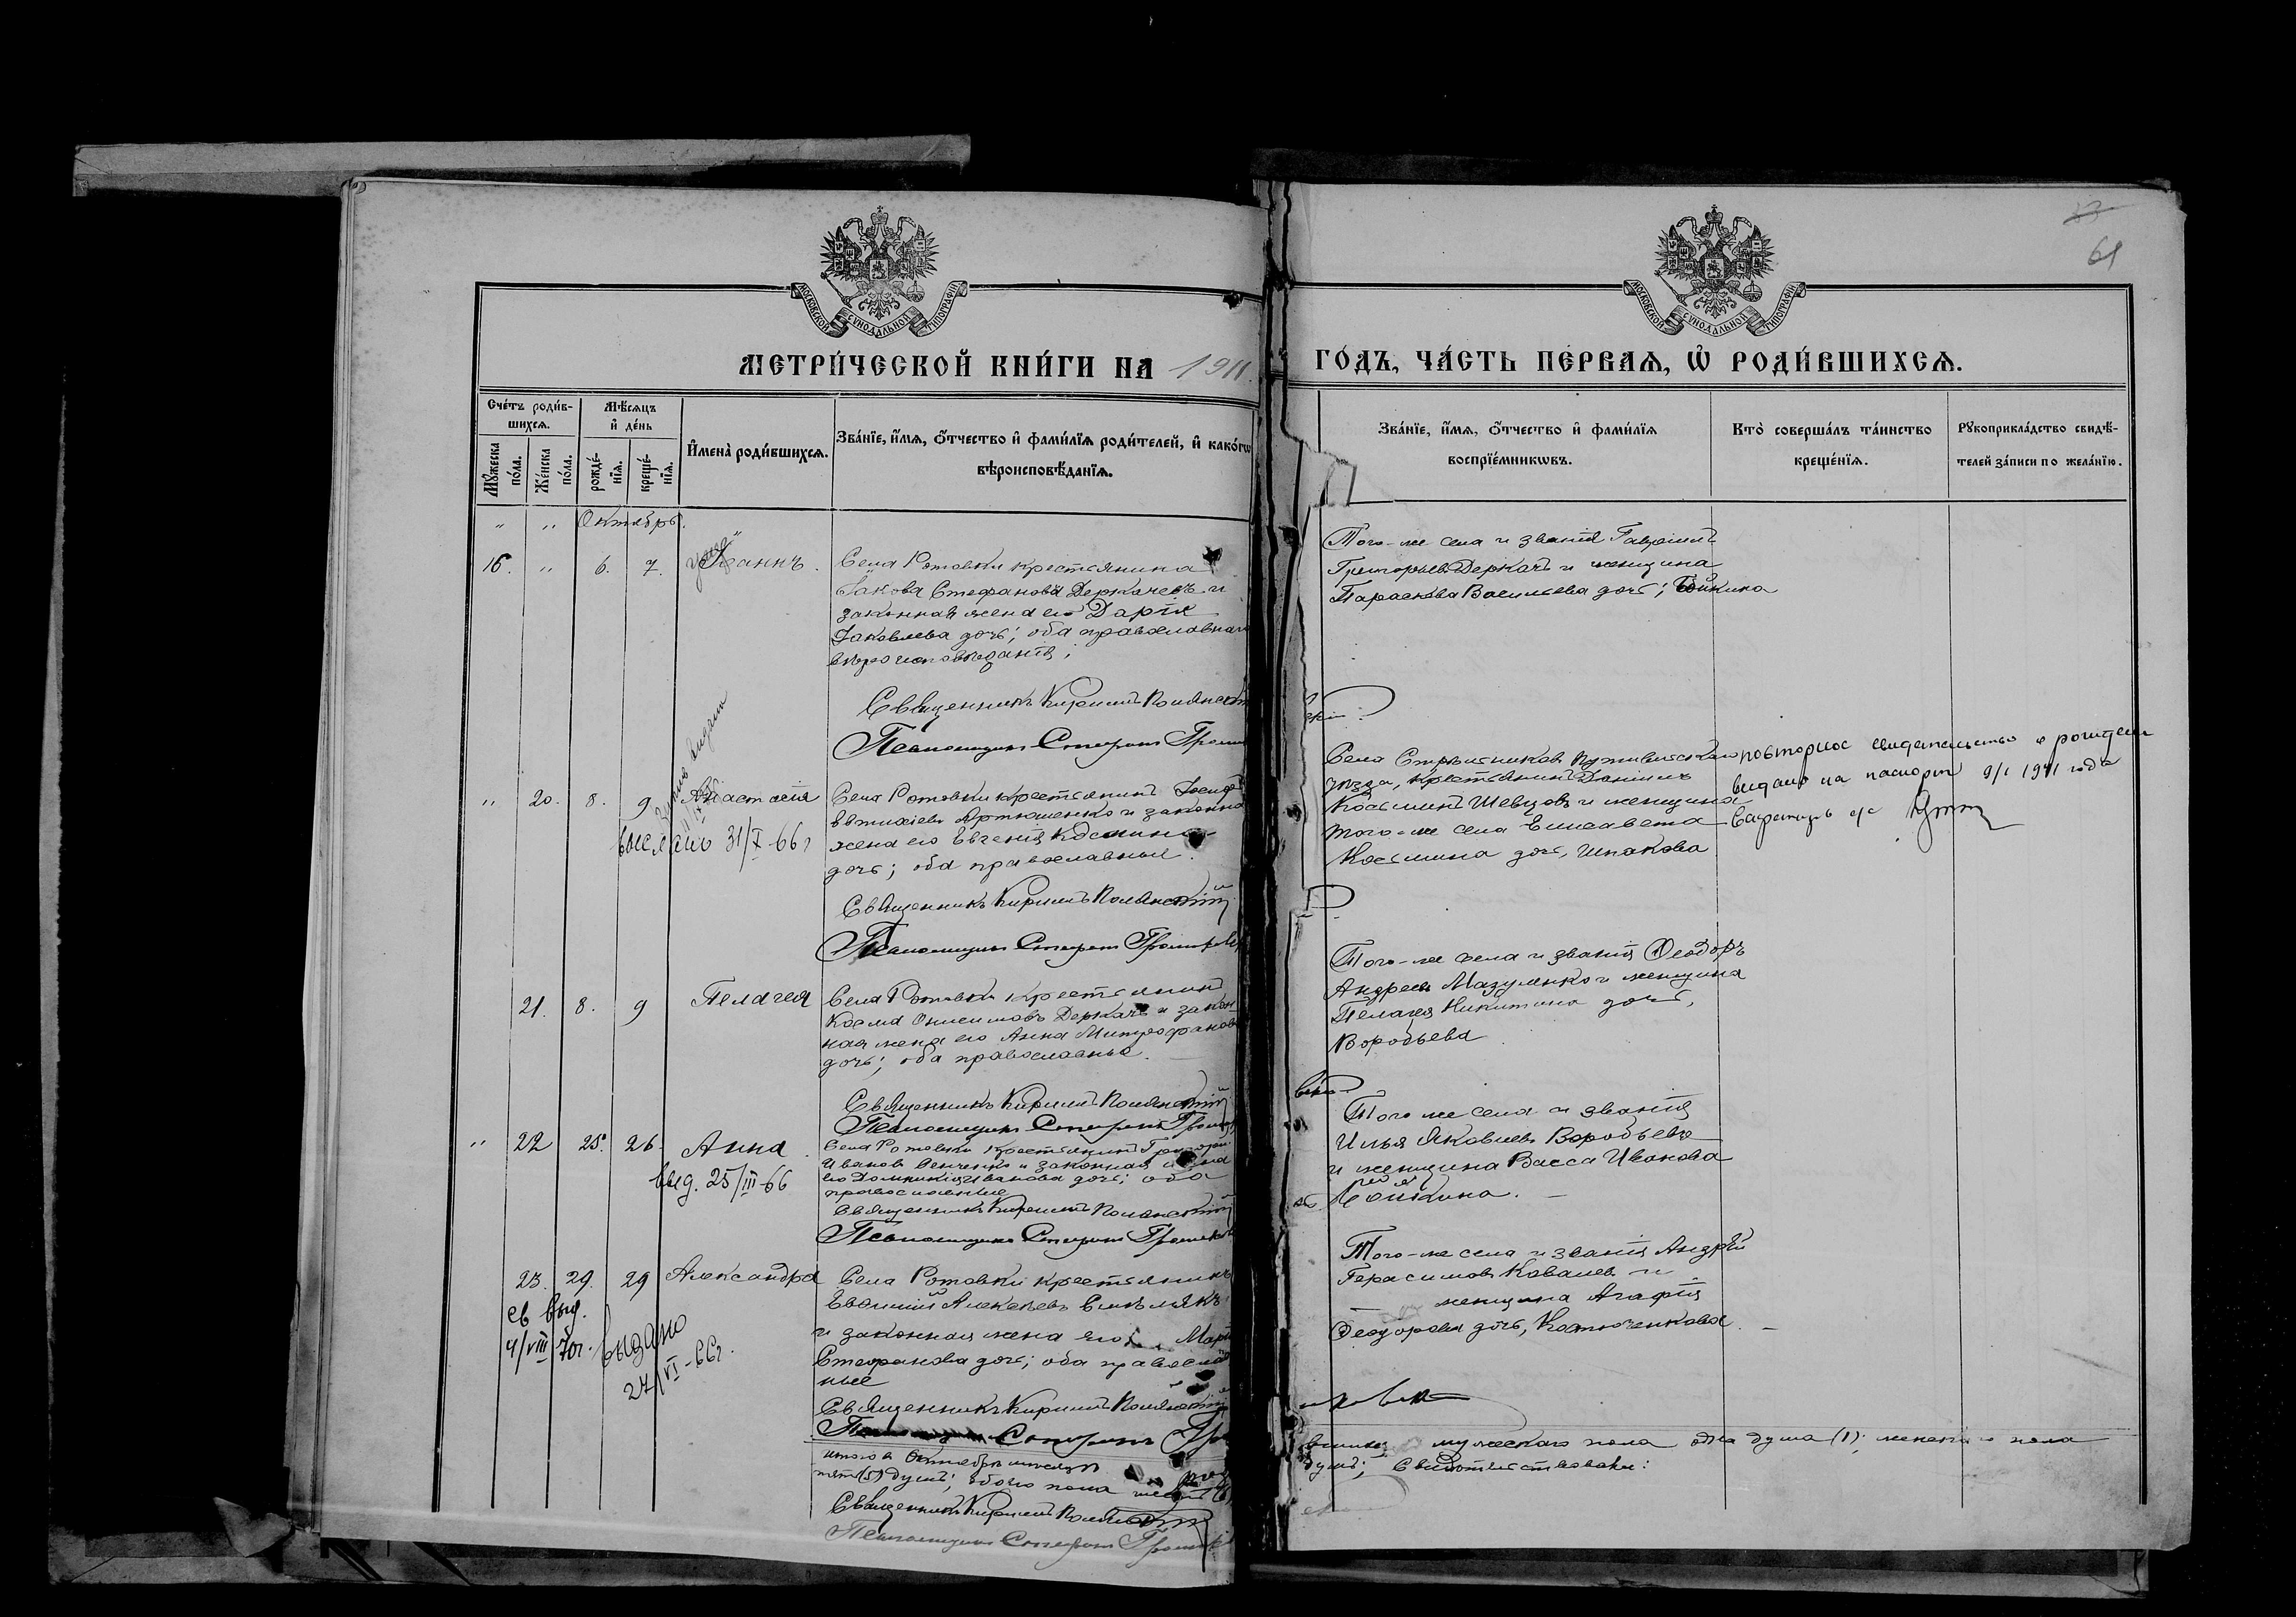 23
61
МОСКОВСКОЙ СѴНОДАЛЬНОЙ ТИПОГРАФІИ
МОСКОВСКОЙ СѴНОДАЛЬНОЙ ТИПОГРАФІИ
МЕТРИ́ЧЕСКОЙ КНИ́ГИ НА 1911.
ГО́ДЪ, ЧА́СТЬ ПЕ́РВАЯ, Ѡ РОДИ́ВШИХСЯ.
Сче́тъ роди́в-
шихся.
Мꙋ́жеска по́ла.
Же́нска по́ла.
Мѣ́сяцъ
и де́нь
рожде́-
нїя.
креще́-
нїя.
Имена̀ роди́вшихся.
Зва́нїе, и́мя, о́тчество и фами́лїя роди́телей, и како́гѡ
вѣроисповѣ́данїя.
Зва́нїе, и́мя, о́тчество и фами́лїя
воспрїе́мникѡвъ.
Кто̀ соверша́лъ та́инство
креще́нїя.
Рꙋкоприкла́дство свидѣ́-
телей за́писи по жела́нїю.
" " Октябрь.
16. " 6. 7. Іоаннъ.
Села Ротовки крестьянина
Іакова Стефанова Деркачевъ и
законная жена его Дарія
Іаковлева дочь; оба православнаго
вѣроисповѣданія;
Священникъ Кириллъ Полянскій
Псаломщикъ
Того-же села и званія Гавріилъ
Григорьевъ Деркачъ и женщина
Параскева Васильева дочь;
" 20. 8. 9 Анастасія
выслано 31/X-66г
Села Ротовки крестьянинъ
Евтихіевъ Артюшенко и законная
жена его Евгенія Косьмина
дочь; оба православные.
Священникъ Кириллъ Полянскій
Псаломщикъ
Села Стрѣльниковъ Путивльскаго
уѣзда, крестьянинъ Даніилъ
Косьминъ Шевцовъ и женщина
того-же села Елисавета
Косьмина дочь, Шпакова
повторное свидетельство о рождении
видано на паспорт 9/I 1941 года
21. 8. 9 Пелагея
Села Ротовки крестьянинъ
Косма Онисимовъ Деркачъ и закон-
ная жена его Анна Митрофанова
дочь; оба православные.
Священникъ Кириллъ Полянскій
Псаломщикъ
Того-же села и званія Ѳеодоръ
Андреевъ Мазуленко и женщина
Пелагея Никитина дочь,
Воробьева
" 22 25. 26. Анна.
выд. 25/III-66
Села Ротовки крестьянинъ Григорій
Ивановъ Сенченко и законная жена
его Домникія Иванова дочь; оба
православные
Священникъ Кириллъ Полянскій
Псаломщикъ
Того же села и званія
Илья Яковлевъ Воробьевъ
и женщина Васса Иванова
23. 29. 29 Александра
св выд.
4/VIII 70г.
выдано
27/VI-66г.
Села Ротовки крестьянинъ
Евѳимій Алексѣевъ
и законная жена его Марія
Стефанова дочь; оба православ-
ные
Священникъ Кириллъ Полянскій
Того-же села и званія Андрей
Герасимовъ Ковалевъ и
женщина Агафія
Ѳеодорова дочь, Костюченкова.
Итого въ Октябрѣ мѣсяцѣ
мужескаго пола одна душа (1); женскаго пола
пять (5) душъ; обоего пола шесть (6)
душъ; Свидѣтельствовали:
Священникъ Кириллъ Полянскій
Псаломщикъ